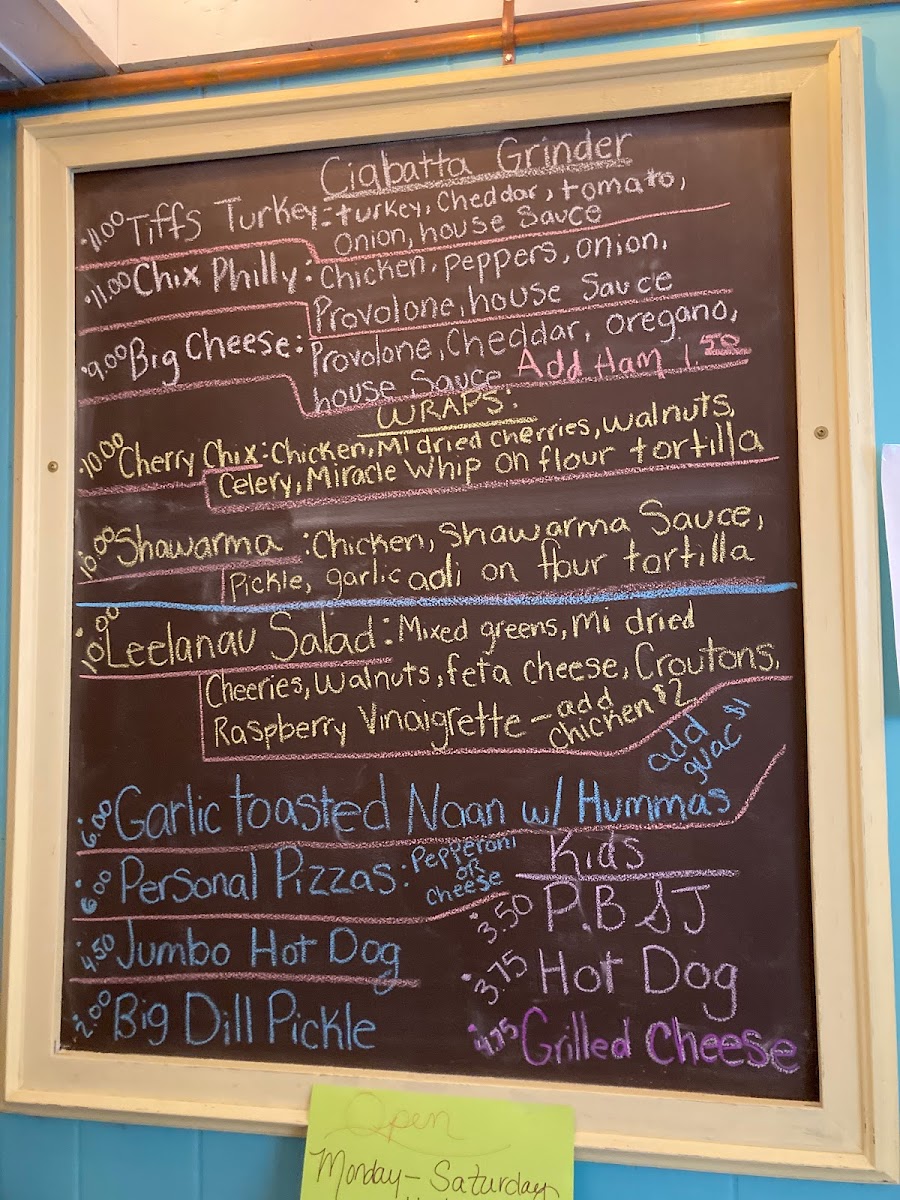 Ciabatta Grinder
11.00 Tiffs Turkey: turkey, Cheddar, tomato,
Onion, house Sauce
11.00 Chix Philly: Chicken, peppers, onion,
Provolone, house Sauce
9.00 Big Cheese: Provolone, Cheddar, oregano,
house Sauce Add Ham 1.50
WRAPS:
10.00 Cherry Chix: Chicken, MI dried cherries, walnuts,
Celery, Miracle Whip on flour tortilla
10.00 Shawarma: Chicken, Shawarma Sauce,
Pickle, garlic aoli on flour tortilla
10.00 Leelanau Salad: Mixed greens, mi dried
Cheeries, Walnuts, feta cheese, Croutons,
Raspberry Vinaigrette - add
chicken $2
add
guac $1
6.00 Garlic toasted Naan w/ Hummas
6.00 Personal Pizzas: Pepperoni
OR
Cheese
4.50 Jumbo Hot Dog
2.00 Big Dill Pickle
Kids
3.50 P.B & J
3.75 Hot Dog
4.75 Grilled Cheese
Open
Monday - Saturday